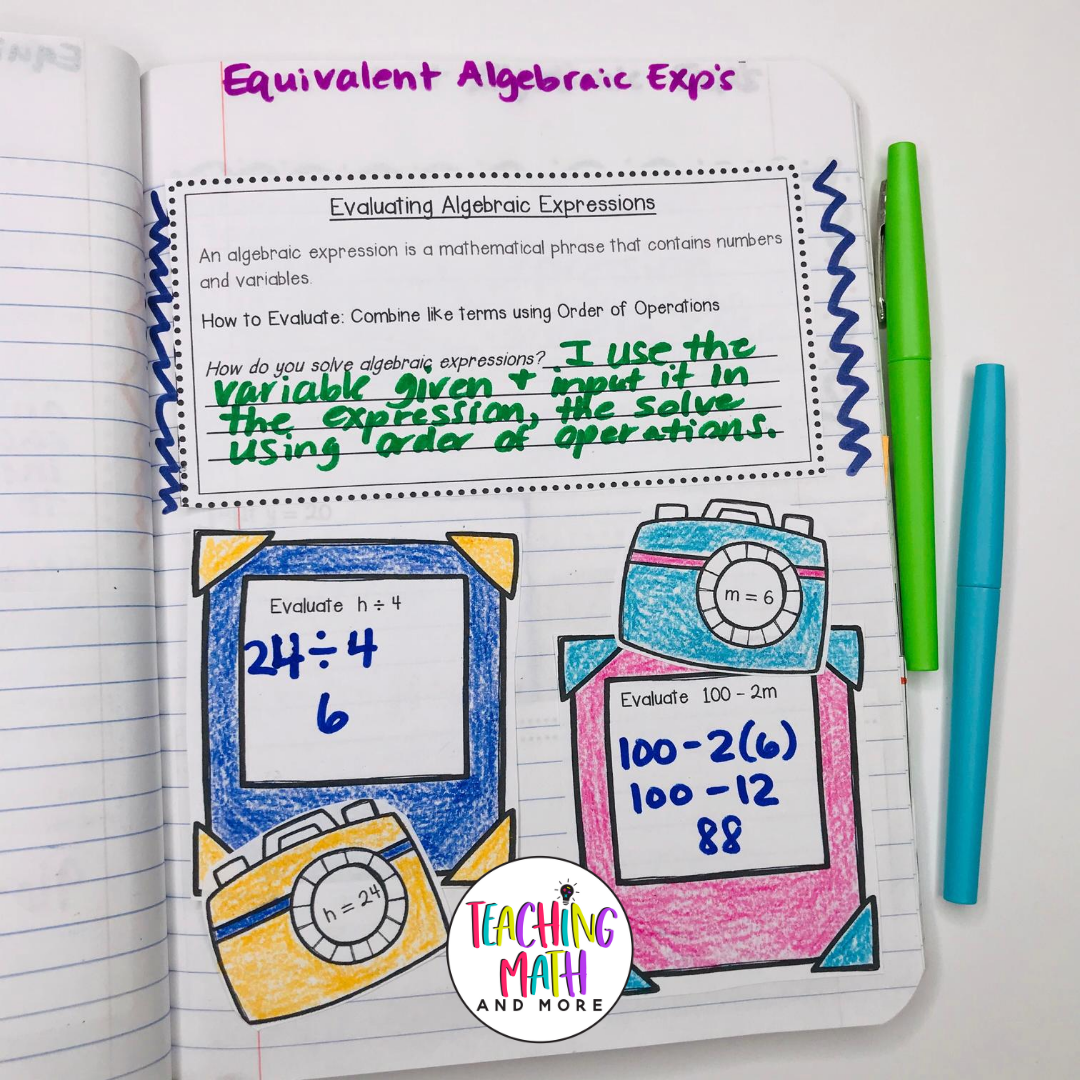 Equivalent Algebraic Exp's
Evaluating Algebraic Expressions
An algebraic expression is a mathematical phrase that contains numbers
and variables.
How to Evaluate: Combine like terms using Order of Operations
How do you solve algebraic expressions? I use the
variable given + input it in
the expression, the solve
using order of operations.
Evaluate h ÷ 4
24 ÷ 4
6
h = 24
m = 6
Evaluate 100 - 2m
100 - 2(6)
100 - 12
88
TEACHING
MATH
AND MORE